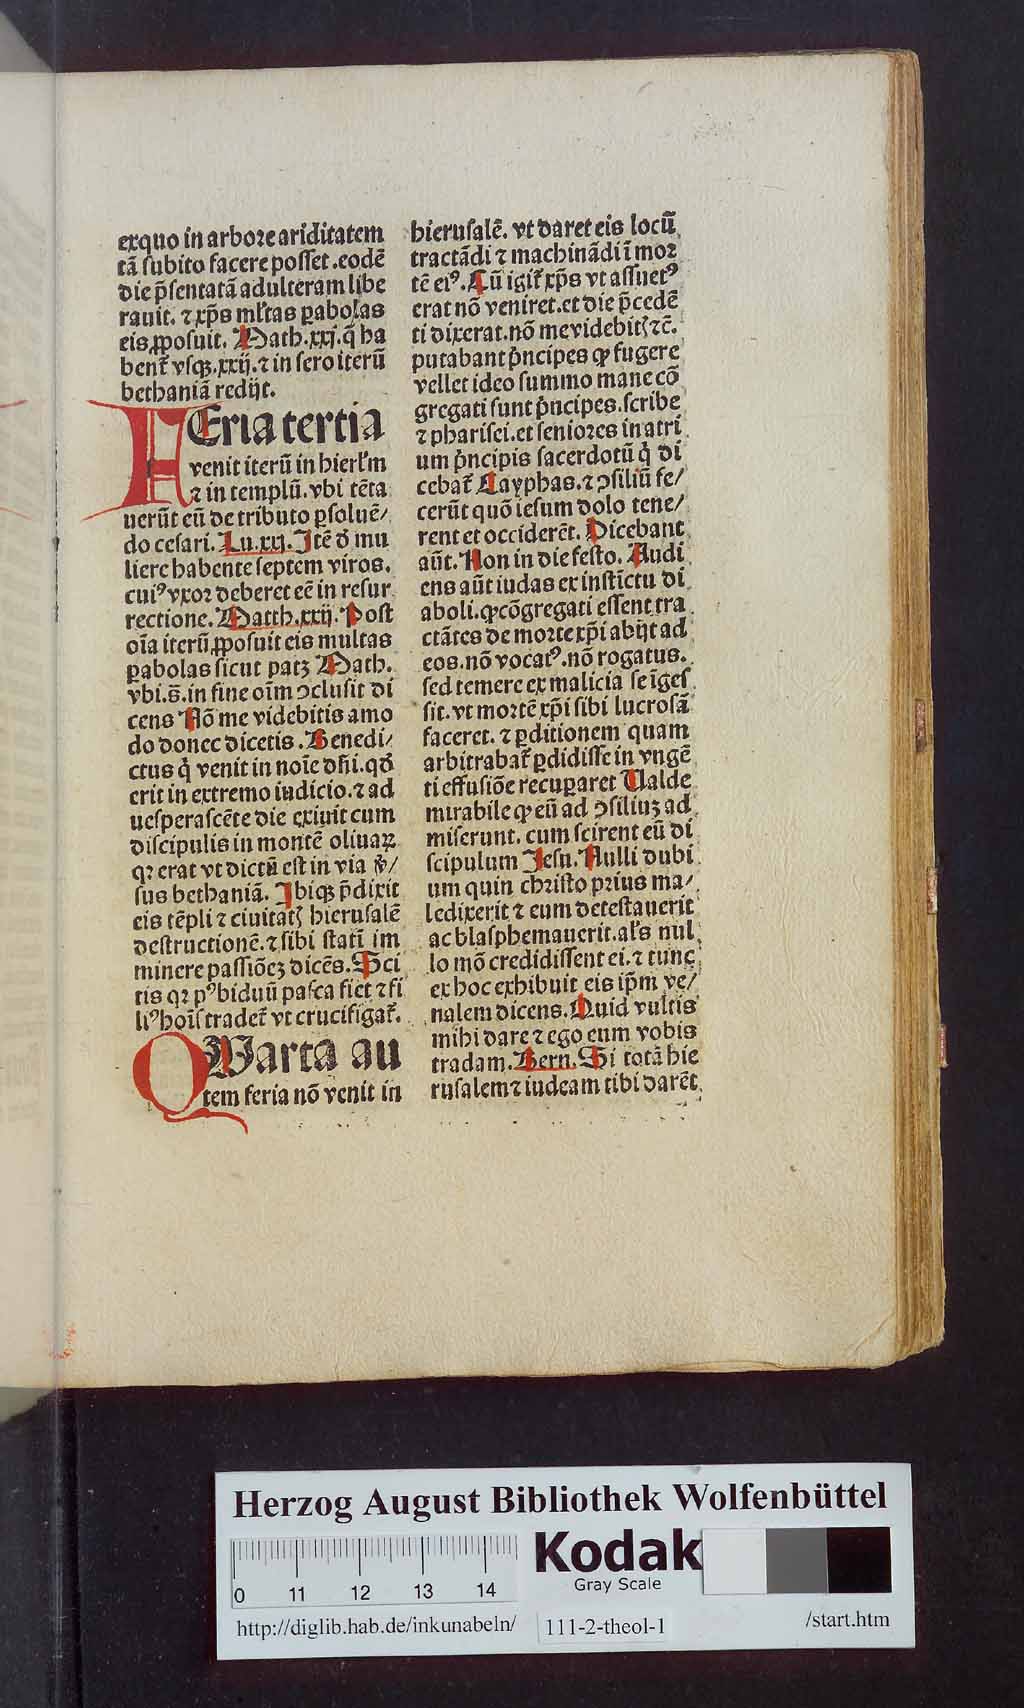 exquo in arbore ariditatem
tā subito facere posset .eodē
die p̄sentatā adulteram libe
rauit. ⁊ xp̄s ml̄tas ꝑabolas
eis ꝓposuit. Math.xxj.q̄ ha
bent᷑ vsqꝫ.xxij.⁊ in sero iterū
bethaniā redijt.
FEria tertia
venit iterū in hierl̄m
⁊ in templū.vbi tēta
uerūt eū de tributo ꝑsoluē/
do cesari. Lu.xxj. Itē d̄ mu
liere habente septem viros.
cuiꝰ vxor deberet eē in resur
rectione. Matth.xxij. Post
oīa iterū ꝓposuit eis multas
ꝑabolas sicut patꝫ Math.
vbi.s̄.in fine oīm ↄclusit di
cens Nō me videbitis amo
do donec dicetis . Benedi/
ctus q̇ venit in noīe dn̄i.qd̄
erit in extremo iudicio.⁊ ad
uesperascēte die exiuit cum
discipulis in montē oliuaꝝ
qꝛ erat vt dictū est in via v̄/
sus bethaniā. Ibiqꝫ p̄dixit
eis tēpli ⁊ ciuitatꝭ hierusalē
destructionē.⁊ sibi statī im
minere passiōeꝫ dicēs. Sci
tis qꝛ pꝰ biduū pasca fiet ⁊ fi
liꝰ hoīs tradet᷑ vt crucifigat᷑.
QWarta au
tem feria nō venit in
hierusalē. vt daret eis locū
tractādi ⁊ machinādi ī mor
tē eiꝰ. Cū igit᷑ xp̄s vt assuetꝰ
erat nō veniret.et die p̄cedē
ti dixerat.nō me videbitꝭ ⁊c̄.
putabant pṅcipes ꝙ fugere
vellet ideo summo mane cō
gregati sunt pṅcipes.scribe
⁊ pharisei.et seniores in atri
um pṅcipis sacerdotū q̇ di
cebat᷑ Cayphas.⁊ ↄsiliū fe/
cerūt quō iesum dolo tene/
rent et occiderēt. Dicebant
aūt. Non in die festo. Audi
ens aūt iudas ex instictu di
aboli.ꝙ cōgregati essent tra
ctātes de morte xp̄i abijt ad
eos.nō vocatꝰ.nō rogatus.
sed temere ex malicia se īges
sit.vt mortē xp̄i sibi lucrosā
faceret. ⁊ ꝑditionem quam
arbitrabat᷑ ꝑdidisse in vngē
ti effusiōe recuꝑaret Ualde
mirabile ꝙ eū ad ↄsiliuꝫ ad
miserunt. cum scirent eū di
scipulum Jesu. Nulli dubi
um quin christo prius ma/
ledixerit ⁊ eum detestauerit
ac blasphemauerit.al̄s nul
lo mō credidissent ei.⁊ tunc
ex hoc exhibuit eis ip̄m ve/
nalem dicens. Quid vultis
mihi dare ⁊ ego eum vobis
tradam. Bern. Si totā hie
rusalem ⁊ iudeam tibi darēt
Herzog August Bibliothek Wolfenbüttel
0 11 12 13 14
Kodak
Gray Scale
http://diglib.hab.de/inkunabeln/ 111-2-theol-1 /start.htm